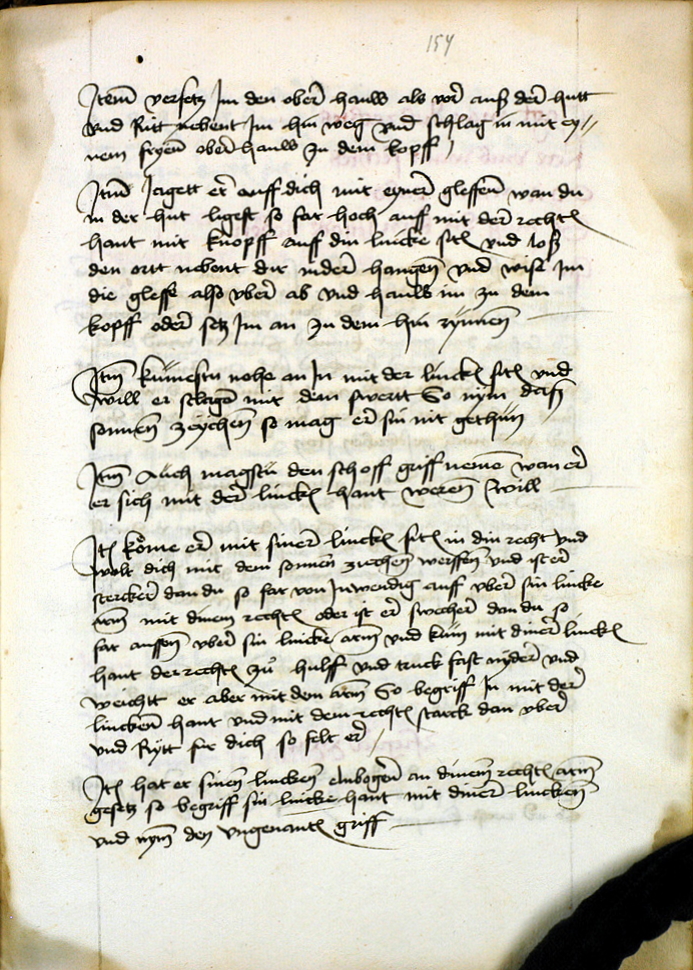 154
Item versetz Im den ober hauw als vor auß der hutt
vnd Ritt nebent Im hin weg vnd schlag in mit ey//
nem fryen ober hauw zu dem kopff
Item Jagett er auff dich mit eyner gleffen wan du
in der hut ligest so far hoch auf mit der rechten
hant mit knopff auff din lincke sitten vnd loß
den ortt nebent dir nider hangen vnd wise im
die gleffe also vber ab vnd hauw im zu dem
kopff oder setz Im an zu dem hin rynnen
Item kumestu nohe an In mit der lincken sitten vnd
will er schlagen mit dem swertt So nym daß
sonnen zeychen so mag er sin nit gethun
Item Auch magstu den schoff griff nemen wan er
er sich mit der lincken hant weren will
Item kome er mit siner lincken sitten in din recht vnd
wolt dich mit dem sonnen zeichen werffen vnd ist er
stercker dan du so far von Inwendig auff vber sin lincke
arm mit dinem rechten oder ist er swecher dan du so
far aussen vber sin lincke arm vnd kum mit diner lincken
hant der rechten zu hulff vnd truck fast nyder vnd
weichtt er aber mit den arm So begriff In mit der
lincken hant vnd mit dem rechten starck dan vber
vnd Rytt fur dich so felt er
Item hat er sinen lincken elnbogen an dinem rechten arm
gesetz so begriff sin lincke hant mit diner lincken
vnd nym den vngenanten griff